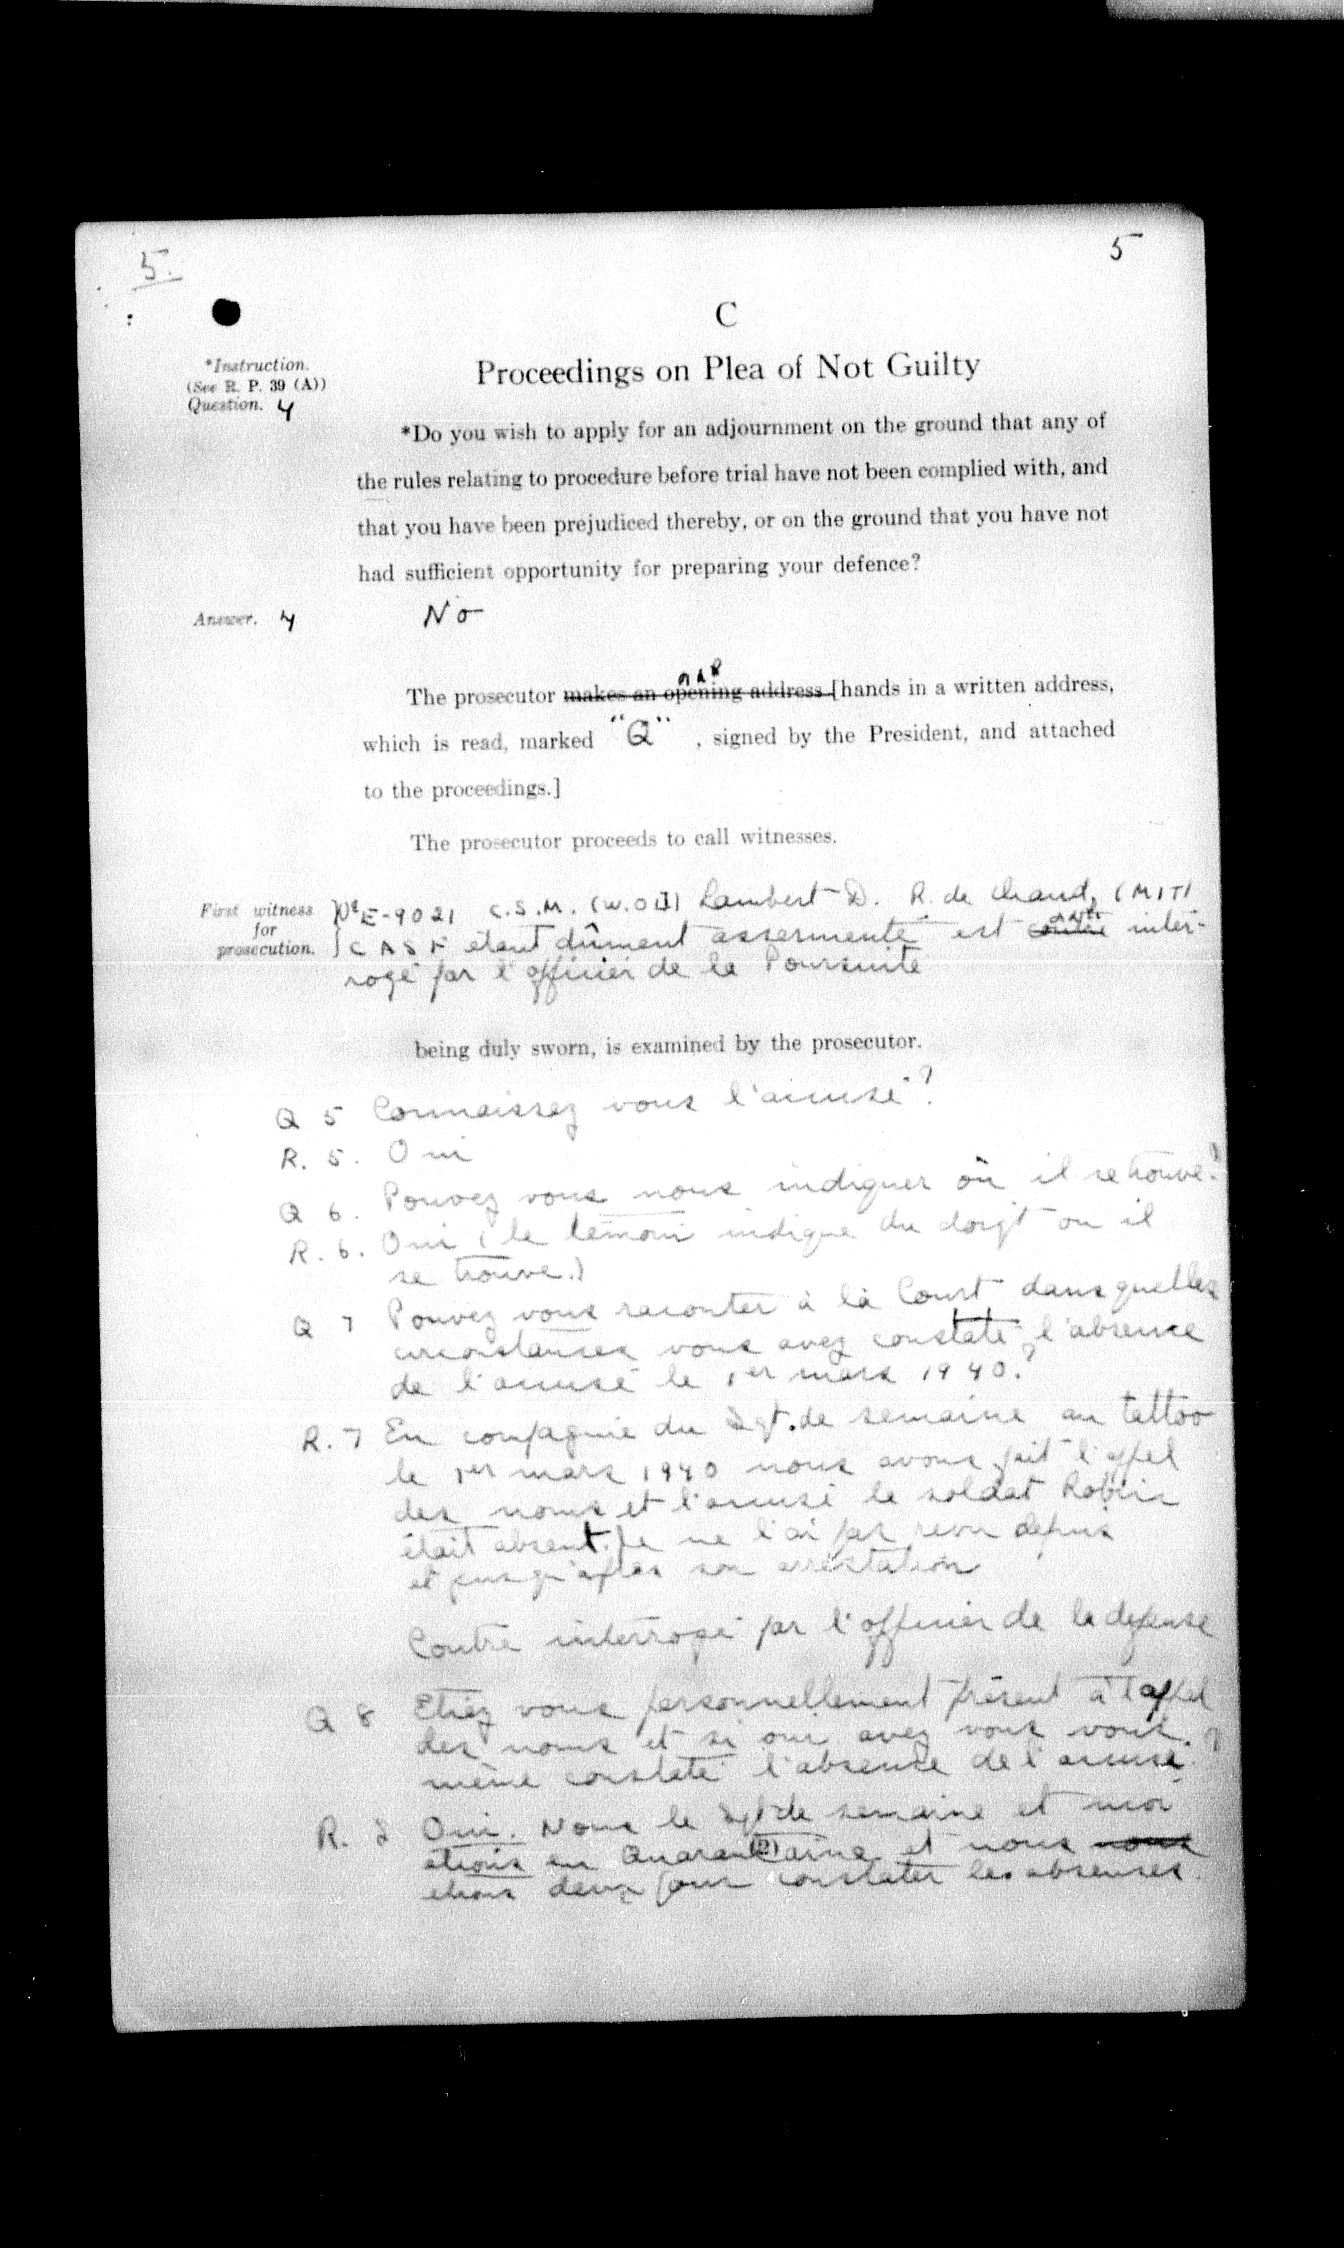 5.
5
C
*Instruction.
(See R. P. 39 (A))
Question. 4
Proceedings on Plea of Not Guilty
*Do you wish to apply for an adjournment on the ground that any of
the rules relating to procedure before trial have not been complied with, and
that you have been prejudiced thereby, or on the ground that you have not
had sufficient opportunity for preparing your defence?
Answer. 4 No
The prosecutor makes an opening address [hands in a written address,
which is read, marked "Q" , signed by the President, and attached
to the proceedings.]
The prosecutor proceeds to call witnesses.
First witness
for
prosecution.
E-9021 C.S.M. (W.O.II) Lambert D. R. de Chaud, (MIT)
C A S F étant dûment assermenté est inter-
rogé par l'officier de la Poursuite
being duly sworn, is examined by the prosecutor.
Q 5 Connaissez vous l'accusé?
R. 5. Oui
Q 6. Pouvez vous nous indiquer où il se trouve?
R. 6. Oui (le témoin indique du doigt ou il
se trouve.)
Q 7 Pouvez vous raconter à la Court dans quelles
circonstances vous avez constaté l'absence
de l'accusé le 1er mars 1940?
R. 7 En compagnie du Sgt. de semaine au tattoo
le 1er mars 1940 nous avons fait l'appel
des noms et l'accusé le soldat Robin
était absent. Je ne l'ai pas revu depuis
et jusqu'après son arrestation
Contre interrogé par l'officier de la défense
Q 8 Etiez vous personnellement présent à l'appel
des noms et si oui avez vous vous
même constaté l'absence de l'accusé?
R. 8 Oui. Nous le Sgt de semaine et moi
étions en et nous nous
étions deux pour constater les absences.